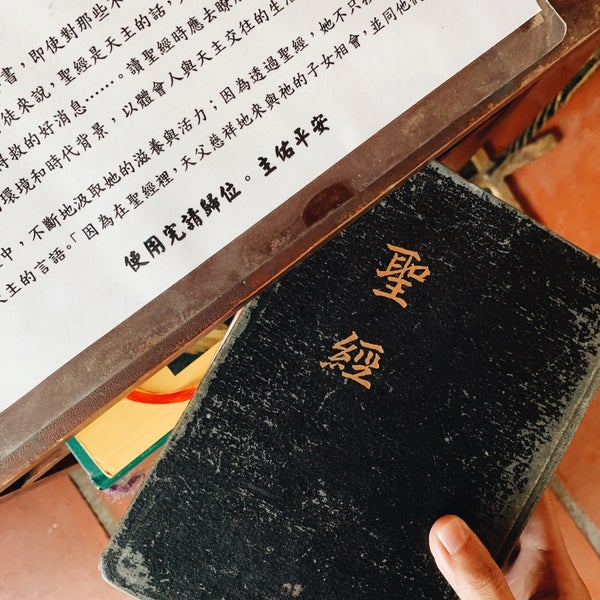 書，即使對那些不
徒來說，聖經是天主的話，
得救的好消息……。讀聖經時應去瞭
的環境和時代背景，以體會人與天主交往的生活
中，不斷地汲取她的滋養與活力；因為透過聖經，她不只
天主的言語。「因為在聖經裡，天父慈祥地來與祂的子女相會，並同他們
使用完請歸位。主佑平安
聖經